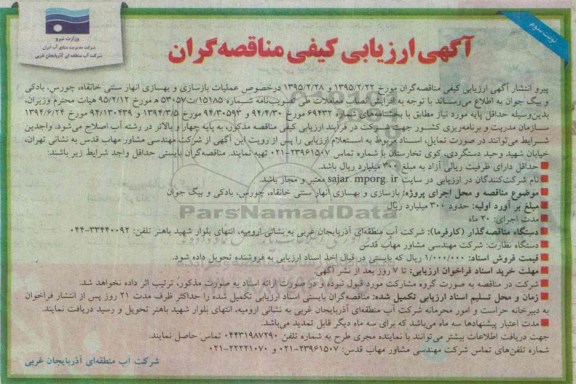 نوبت سوم
وزارت نیرو
شرکت مدیریت منابع آب ایران
شرکت آب منطقه‌ای آذربایجان غربی
آگهی ارزیابی کیفی مناقصه‌گران
پیرو انتشار آگهی ارزیابی کیفی مناقصه‌گران مورخ ۱۳۹۵/۲/۲۲ و ۱۳۹۵/۲/۲۸ درخصوص عملیات بازسازی و بهسازی انهار سنتی خانقاه، چورس، بادکی
و بیگ جوان به اطلاع می‌رساند با توجه به افزایش نصاب معاملات طی تصویب‌نامه شماره ۱۵۱۸۵/ت۵۳۰۵۷ه مورخ ۹۵/۲/۱۲ هیات محترم وزیران،
بدین‌وسیله حداقل پایه مورد نیاز مطابق با بخشنامه‌های شماره ۶۹۴۳۲ مورخ ۹۴/۴/۳۰ و ۹۴/۳۰۵۹۳ مورخ ۱۳۹۴/۳/۵ و ۹۴/۱۳۰۴۳۹ مورخ ۱۳۹۴/۶/۲۴
سازمان مدیریت و برنامه‌ریزی کشور جهت شرکت در فرآیند ارزیابی کیفی مناقصه مذکور، به پایه چهار و بالاتر در رشته آب اصلاح می‌شود. واجدین
شرایط می‌توانند در صورت تمایل، اسناد مربوط به استعلام ارزیابی را پس از رویت این آگهی از شرکت مهندسی مشاور مهاب قدس به نشانی تهران،
خیابان شهید وحید دستگردی، کوی تخارستان با شماره تماس ۲۳۹۶۱۵۰۷-۰۲۱ تهیه نمایند. مناقصه‌گران بایستی حداقل واجد شرایط زیر باشند:
حداقل دارای ظرفیت ریالی آزاد به مبلغ ۳۰۰ میلیارد ریال باشد.
نام شرکت‌کنندگان در ارزیابی در سایت sajar.mporg.ir معتبر و مجاز باشد.
موضوع مناقصه و محل اجرای پروژه: بازسازی و بهسازی انهار سنتی خانقاه، چورس، بادکی و بیگ جوان
مبلغ بر آورد اولیه: حدود ۳۰۰ میلیارد ریال
مدت اجرای: ۲۰ ماه
دستگاه مناقصه گذار (کارفرما): شرکت آب منطقه‌ای آذربایجان غربی به نشانی ارومیه، انتهای بلوار شهید باهنر تلفن: ۳۳۴۴۰۰۹۲-۰۴۴
دستگاه نظارت: شرکت مهندسی مشاور مهاب قدس
قیمت فروش اسناد: ۱/۰۰۰/۰۰۰ ریال که بایستی در قبال اخذ اسناد ارزیابی به فروشنده تحویل داده شود.
مهلت خرید اسناد فراخوان ارزیابی: تا ۷ روز بعد از نشر آگهی.
شرکت در مناقصه به صورت گروه مشارکت مورد قبول نبوده و در صورت ارائه اسناد به صورت مذکور، ترتیب اثر داده نخواهد شد.
زمان و محل تسلیم اسناد ارزیابی تکمیل شده: مناقصه‌گران بایستی اسناد ارزیابی تکمیل شده را حداکثر ظرف مدت ۲۱ روز پس از انتشار فراخوان
به دبیرخانه حراست و امور محرمانه شرکت آب منطقه‌ای آذربایجان غربی به نشانی ارومیه، انتهای بلوار شهید باهنر تحویل و رسید دریافت نمایند.
مدت اعتبار پیشنهادها سه ماه می‌باشد که برای سه ماه دیگر قابل تمدید می‌باشد.
جهت دریافت اطلاعات بیشتر می‌توانند با نماینده مجری طرح به شماره تلفن ۰۴۴۳۱۹۸۷۲۹۰ تماس حاصل نمایند.
شماره تلفن‌های تماس شرکت مهندسی مشاور مهاب قدس: ۲۳۹۶۱۵۰۷-۰۲۱ و ۲۲۲۲۱۰۷۰-۰۲۱
شرکت آب منطقه‌ای آذربایجان غربی
ParsNamadData